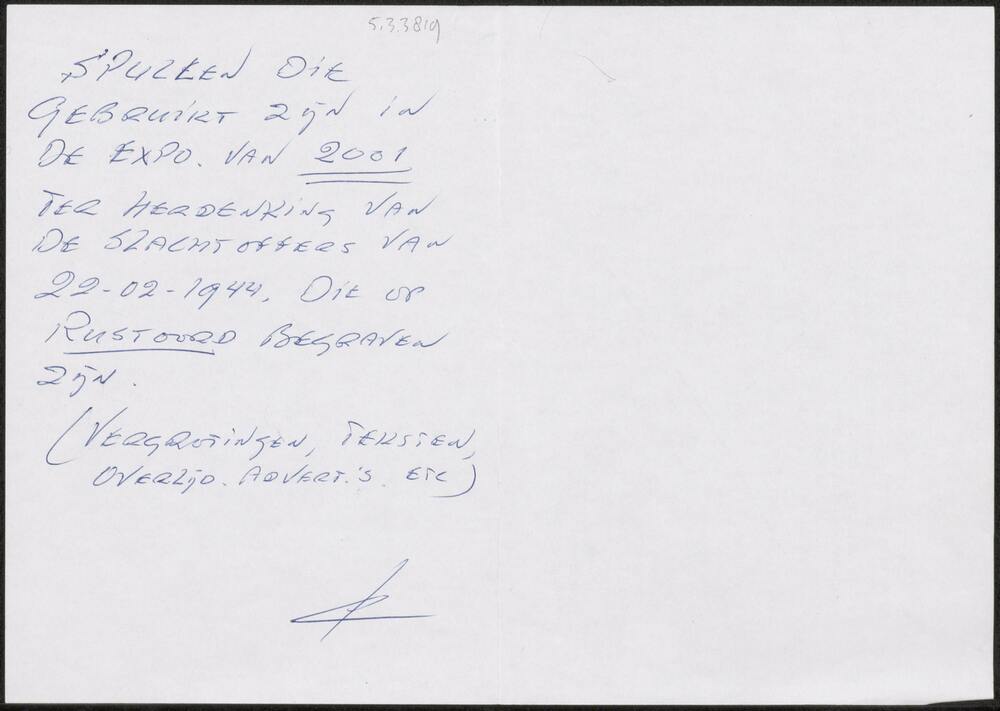 5.3.3819
SPULLEN DIE
GEBRUIKT ZIJN IN
DE EXPO. VAN 2001
TER HERDENKING VAN
DE SLACHTOFFERS VAN
22-02-1944. DIE OP
RUSTOORD BEGRAVEN
ZIJN.
(VERGROTINGEN, TEKSTEN,
OVERLIJD. ADVERT.'S. ETC)